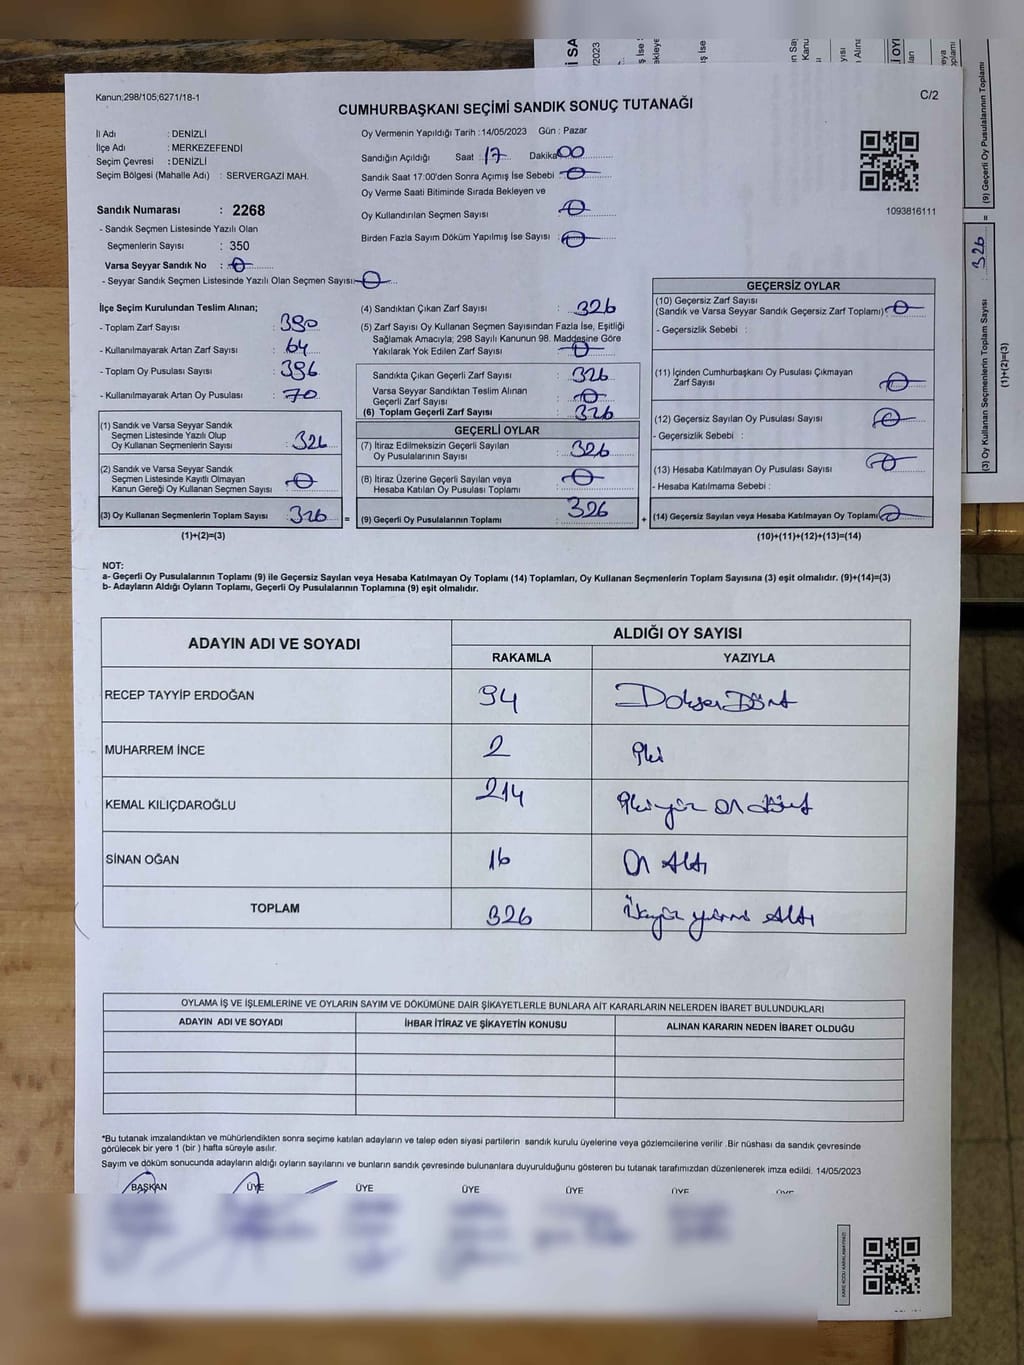 Kanun;298/105;6271/18-1
C/2
CUMHURBAŞKANI SEÇİMİ SANDIK SONUÇ TUTANAĞI
İl Adı : DENİZLİ
İlçe Adı : MERKEZEFENDİ
Seçim Çevresi : DENİZLİ
Seçim Bölgesi (Mahalle Adı) : SERVERGAZİ MAH.
Sandık Numarası : 2268
- Sandık Seçmen Listesinde Yazılı Olan
Seçmenlerin Sayısı : 350
Varsa Seyyar Sandık No : 0
- Seyyar Sandık Seçmen Listesinde Yazılı Olan Seçmen Sayısı: 0
Oy Vermenin Yapıldığı Tarih : 14/05/2023 Gün : Pazar
Sandığın Açıldığı Saat : 17 Dakika 00
Sandık Saat 17:00'den Sonra Açımış İse Sebebi : 0
Oy Verme Saati Bitiminde Sırada Bekleyen ve
Oy Kullandırılan Seçmen Sayısı : 0
Birden Fazla Sayım Döküm Yapılmış İse Sayısı : 0
1093816111
İlçe Seçim Kurulundan Teslim Alınan;
- Toplam Zarf Sayısı : 390
- Kullanılmayarak Artan Zarf Sayısı : 64
- Toplam Oy Pusulası Sayısı : 396
- Kullanılmayarak Artan Oy Pusulası : 70
(1) Sandık ve Varsa Seyyar Sandık
Seçmen Listesinde Yazılı Olup
Oy Kullanan Seçmenlerin Sayısı : 326
(2) Sandık ve Varsa Seyyar Sandık
Seçmen Listesinde Kayıtlı Olmayan
Kanun Gereği Oy Kullanan Seçmen Sayısı : 0
(3) Oy Kullanan Seçmenlerin Toplam Sayısı : 326 =
(1)+(2)=(3)
(4) Sandıktan Çıkan Zarf Sayısı : 326
(5) Zarf Sayısı Oy Kullanan Seçmen Sayısından Fazla İse, Eşitliği
Sağlamak Amacıyla; 298 Sayılı Kanunun 98. Maddesine Göre
Yakılarak Yok Edilen Zarf Sayısı : 0
Sandıkta Çıkan Geçerli Zarf Sayısı : 326
Varsa Seyyar Sandıktan Teslim Alınan
Geçerli Zarf Sayısı : 0
(6) Toplam Geçerli Zarf Sayısı : 326
GEÇERLİ OYLAR
(7) İtiraz Edilmeksizin Geçerli Sayılan
Oy Pusulalarının Sayısı : 326
(8) İtiraz Üzerine Geçerli Sayılan veya
Hesaba Katılan Oy Pusulası Toplamı : 0
(9) Geçerli Oy Pusulalarının Toplamı : 326 +
GEÇERSİZ OYLAR
(10) Geçersiz Zarf Sayısı
(Sandık ve Varsa Seyyar Sandık Geçersiz Zarf Toplamı) : 0
- Geçersizlik Sebebi :
(11) İçinden Cumhurbaşkanı Oy Pusulası Çıkmayan
Zarf Sayısı : 0
(12) Geçersiz Sayılan Oy Pusulası Sayısı : 0
- Geçersizlik Sebebi :
(13) Hesaba Katılmayan Oy Pusulası Sayısı : 0
- Hesaba Katılmama Sebebi :
(14) Geçersiz Sayılan veya Hesaba Katılmayan Oy Toplamı : 0
(10)+(11)+(12)+(13)=(14)
NOT:
a- Geçerli Oy Pusulalarının Toplamı (9) ile Geçersiz Sayılan veya Hesaba Katılmayan Oy Toplamı (14) Toplamları, Oy Kullanan Seçmenlerin Toplam Sayısına (3) eşit olmalıdır. (9)+(14)=(3)
b- Adayların Aldığı Oyların Toplamı, Geçerli Oy Pusulalarının Toplamına (9) eşit olmalıdır.
ADAYIN ADI VE SOYADI ALDIĞI OY SAYISI
RAKAMLA YAZIYLA
RECEP TAYYİP ERDOĞAN 94 Doksan Dört
MUHARREM İNCE 2 İki
KEMAL KILIÇDAROĞLU 214 İkiyüz on dört
SİNAN OĞAN 16 On Altı
TOPLAM 326 Üçyüz yirmi Altı
OYLAMA İŞ VE İŞLEMLERİNE VE OYLARIN SAYIM VE DÖKÜMÜNE DAİR ŞİKAYETLERLE BUNLARA AİT KARARLARIN NELERDEN İBARET BULUNDUKLARI
ADAYIN ADI VE SOYADI İHBAR İTİRAZ VE ŞİKAYETİN KONUSU ALINAN KARARIN NEDEN İBARET OLDUĞU
*Bu tutanak imzalandıktan ve mühürlendikten sonra seçime katılan adayların ve talep eden siyasi partilerin sandık kurulu üyelerine veya gözlemcilerine verilir .Bir nüshası da sandık çevresinde
görülecek bir yere 1 (bir ) hafta süreyle asılır.
Sayım ve döküm sonucunda adayların aldığı oyların sayılarını ve bunların sandık çevresinde bulunanlara duyurulduğunu gösteren bu tutanak tarafımızdan düzenlenerek imza edildi. 14/05/2023
BAŞKAN ÜYE ÜYE ÜYE ÜYE ÜYE ÜYE
(9) Geçerli Oy Pusulalarının Toplamı
=
(3) Oy Kullanan Seçmenlerin Toplam Sayısı : 326
(1)+(2)=(3)